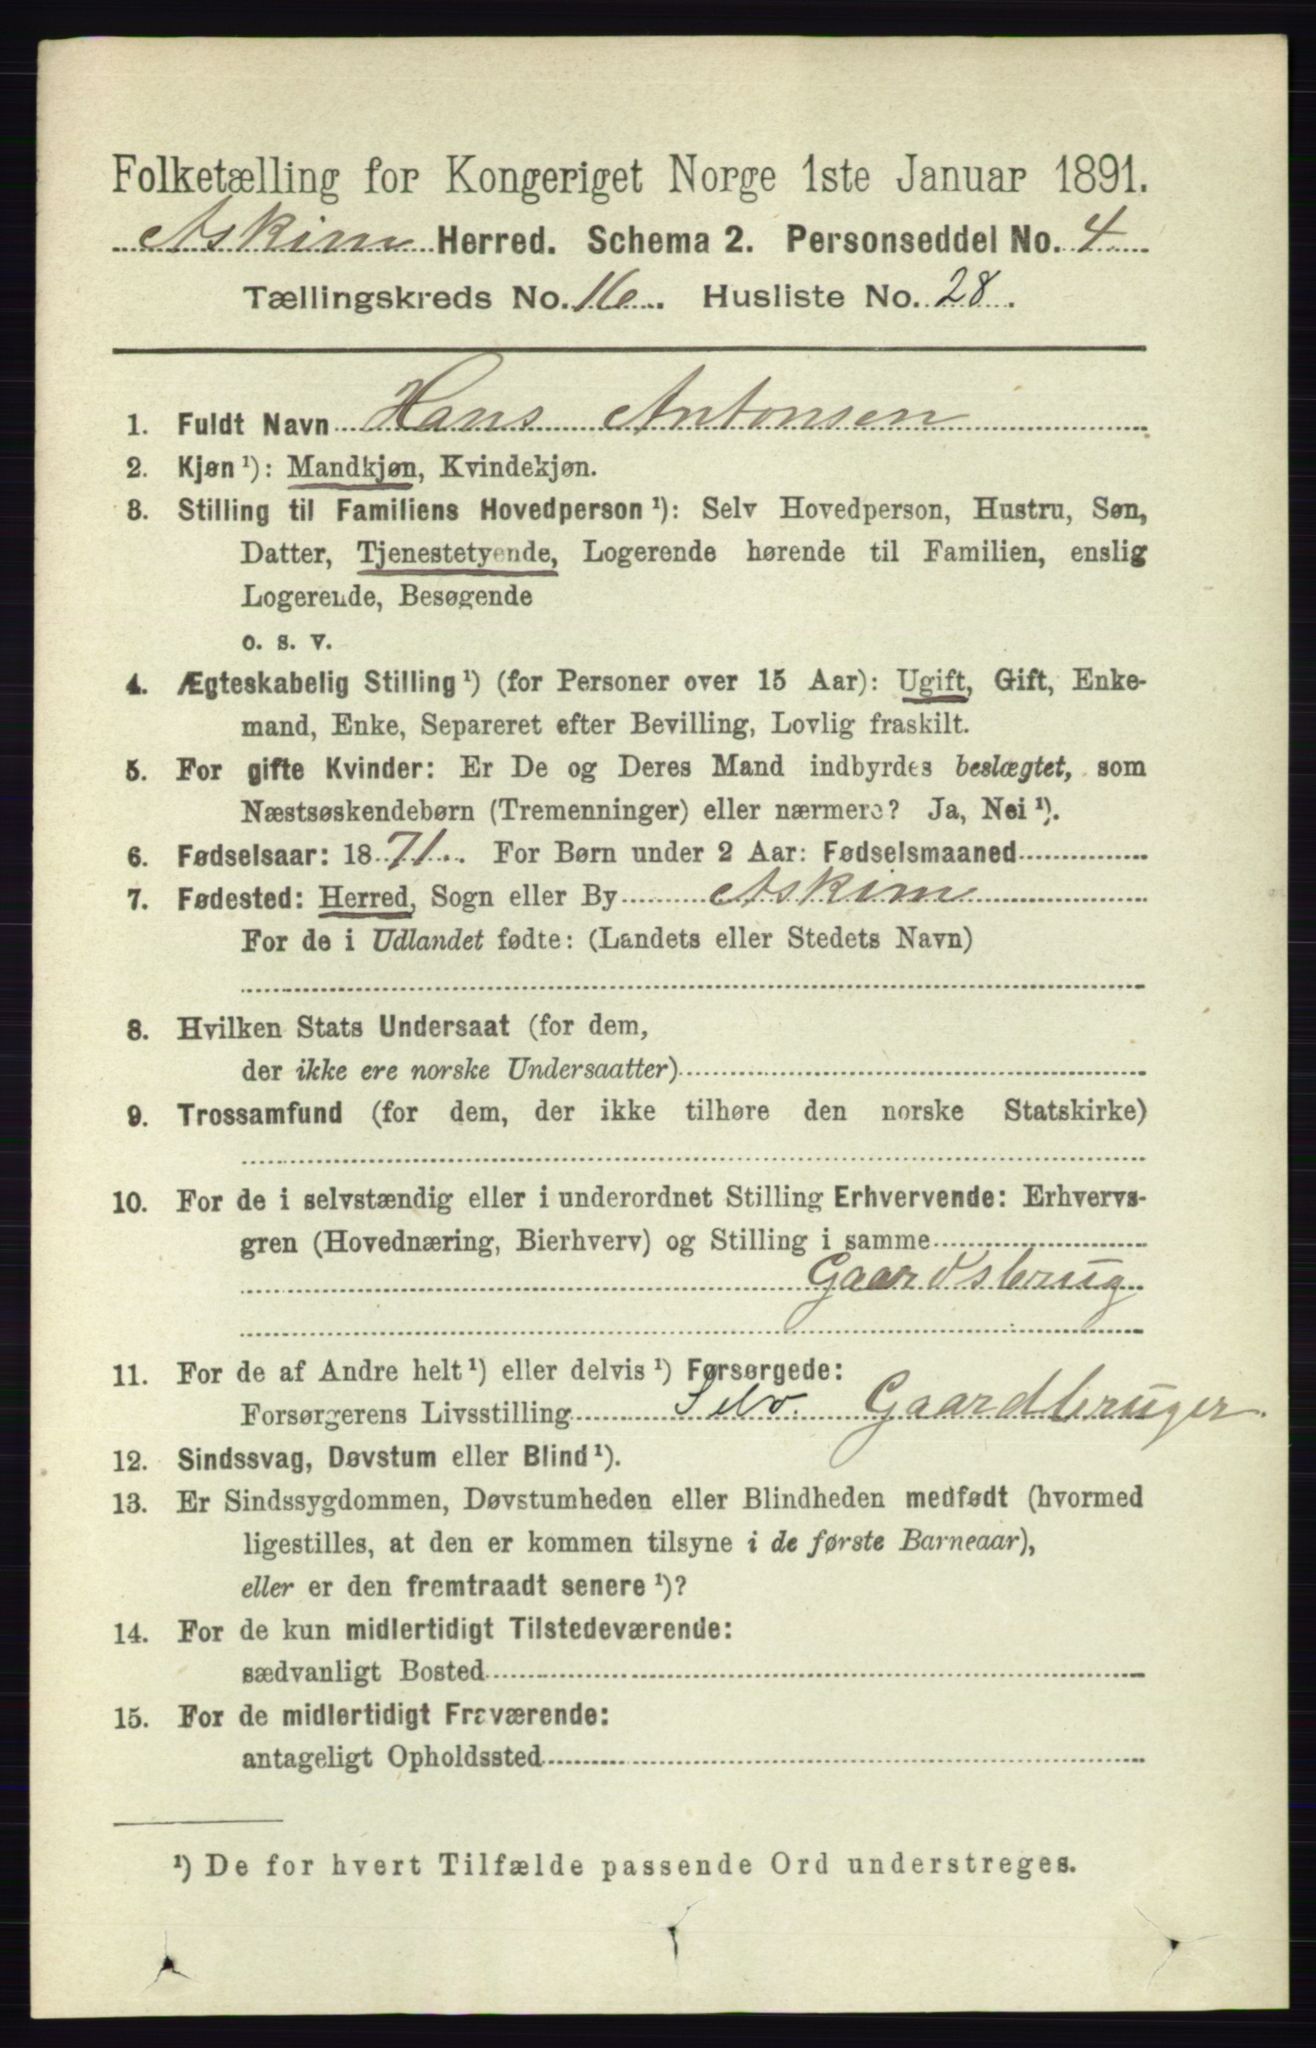 Folketælling for Kongeriget Norge 1ste Januar 1891.
Askim Herred. Schema 2. Personseddel No. 4
Tællingskreds No. 16. Husliste No. 28.
1. Fuldt Navn Hans Antonsen
2. Kjøn ¹): Mandkjøn, Kvindekjøn.
3. Stilling til Familiens Hovedperson ¹): Selv Hovedperson, Hustru, Søn,
Datter, Tjenestetyende, Logerende hørende til Familien, enslig
Logerende, Besøgende
o. s. v.
4. Ægteskabelig Stilling ¹) (for Personer over 15 Aar): Ugift, Gift, Enke-
mand, Enke, Separeret efter Bevilling, Lovlig fraskilt.
5. For gifte Kvinder: Er De og Deres Mand indbyrdes beslægtet, som
Næstsøskendebørn (Tremenninger) eller nærmere? Ja, Nei ¹).
6. Fødselsaar: 1871. For Børn under 2 Aar: Fødselsmaaned
7. Fødested: Herred, Sogn eller By Askim
For de i Udlandet fødte: (Landets eller Stedets Navn)
8. Hvilken Stats Undersaat (for dem,
der ikke ere norske Undersaatter)
9. Trossamfund (for dem, der ikke tilhøre den norske Statskirke)
10. For de i selvstændig eller i underordnet Stilling Erhvervende: Erhvervs-
gren (Hovednæring, Bierhverv) og Stilling i samme
Gaardsbrug
11. For de af Andre helt ¹) eller delvis ¹) Forsørgede:
Forsørgerens Livsstilling Selv Gaardbruger.
12. Sindssvag, Døvstum eller Blind ¹).
13. Er Sindssygdommen, Døvstumheden eller Blindheden medfødt (hvormed
ligestilles, at den er kommen tilsyne i de første Barneaar),
eller er den fremtraadt senere ¹)?
14. For de kun midlertidigt Tilstedeværende:
sædvanligt Bosted
15. For de midlertidigt Fraværende:
antageligt Opholdssted
¹) De for hvert Tilfælde passende Ord understreges.